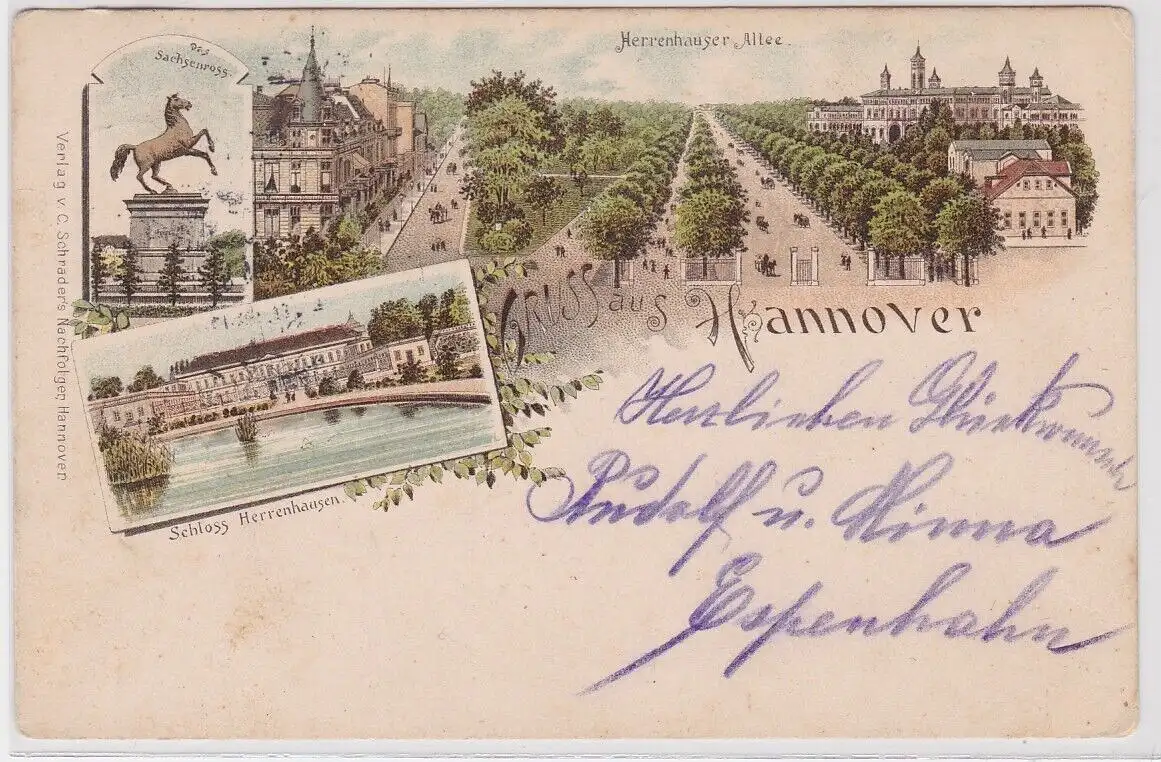 Das
Sachsenross.
Herrenhauser Allee.
Verlag v. C. Schrader's Nachfolger, Hannover
Gruss aus Hannover
Schloss Herrenhausen.
Herzlichen Glückwunsch
Rudolf u. Minna
Espenhahn